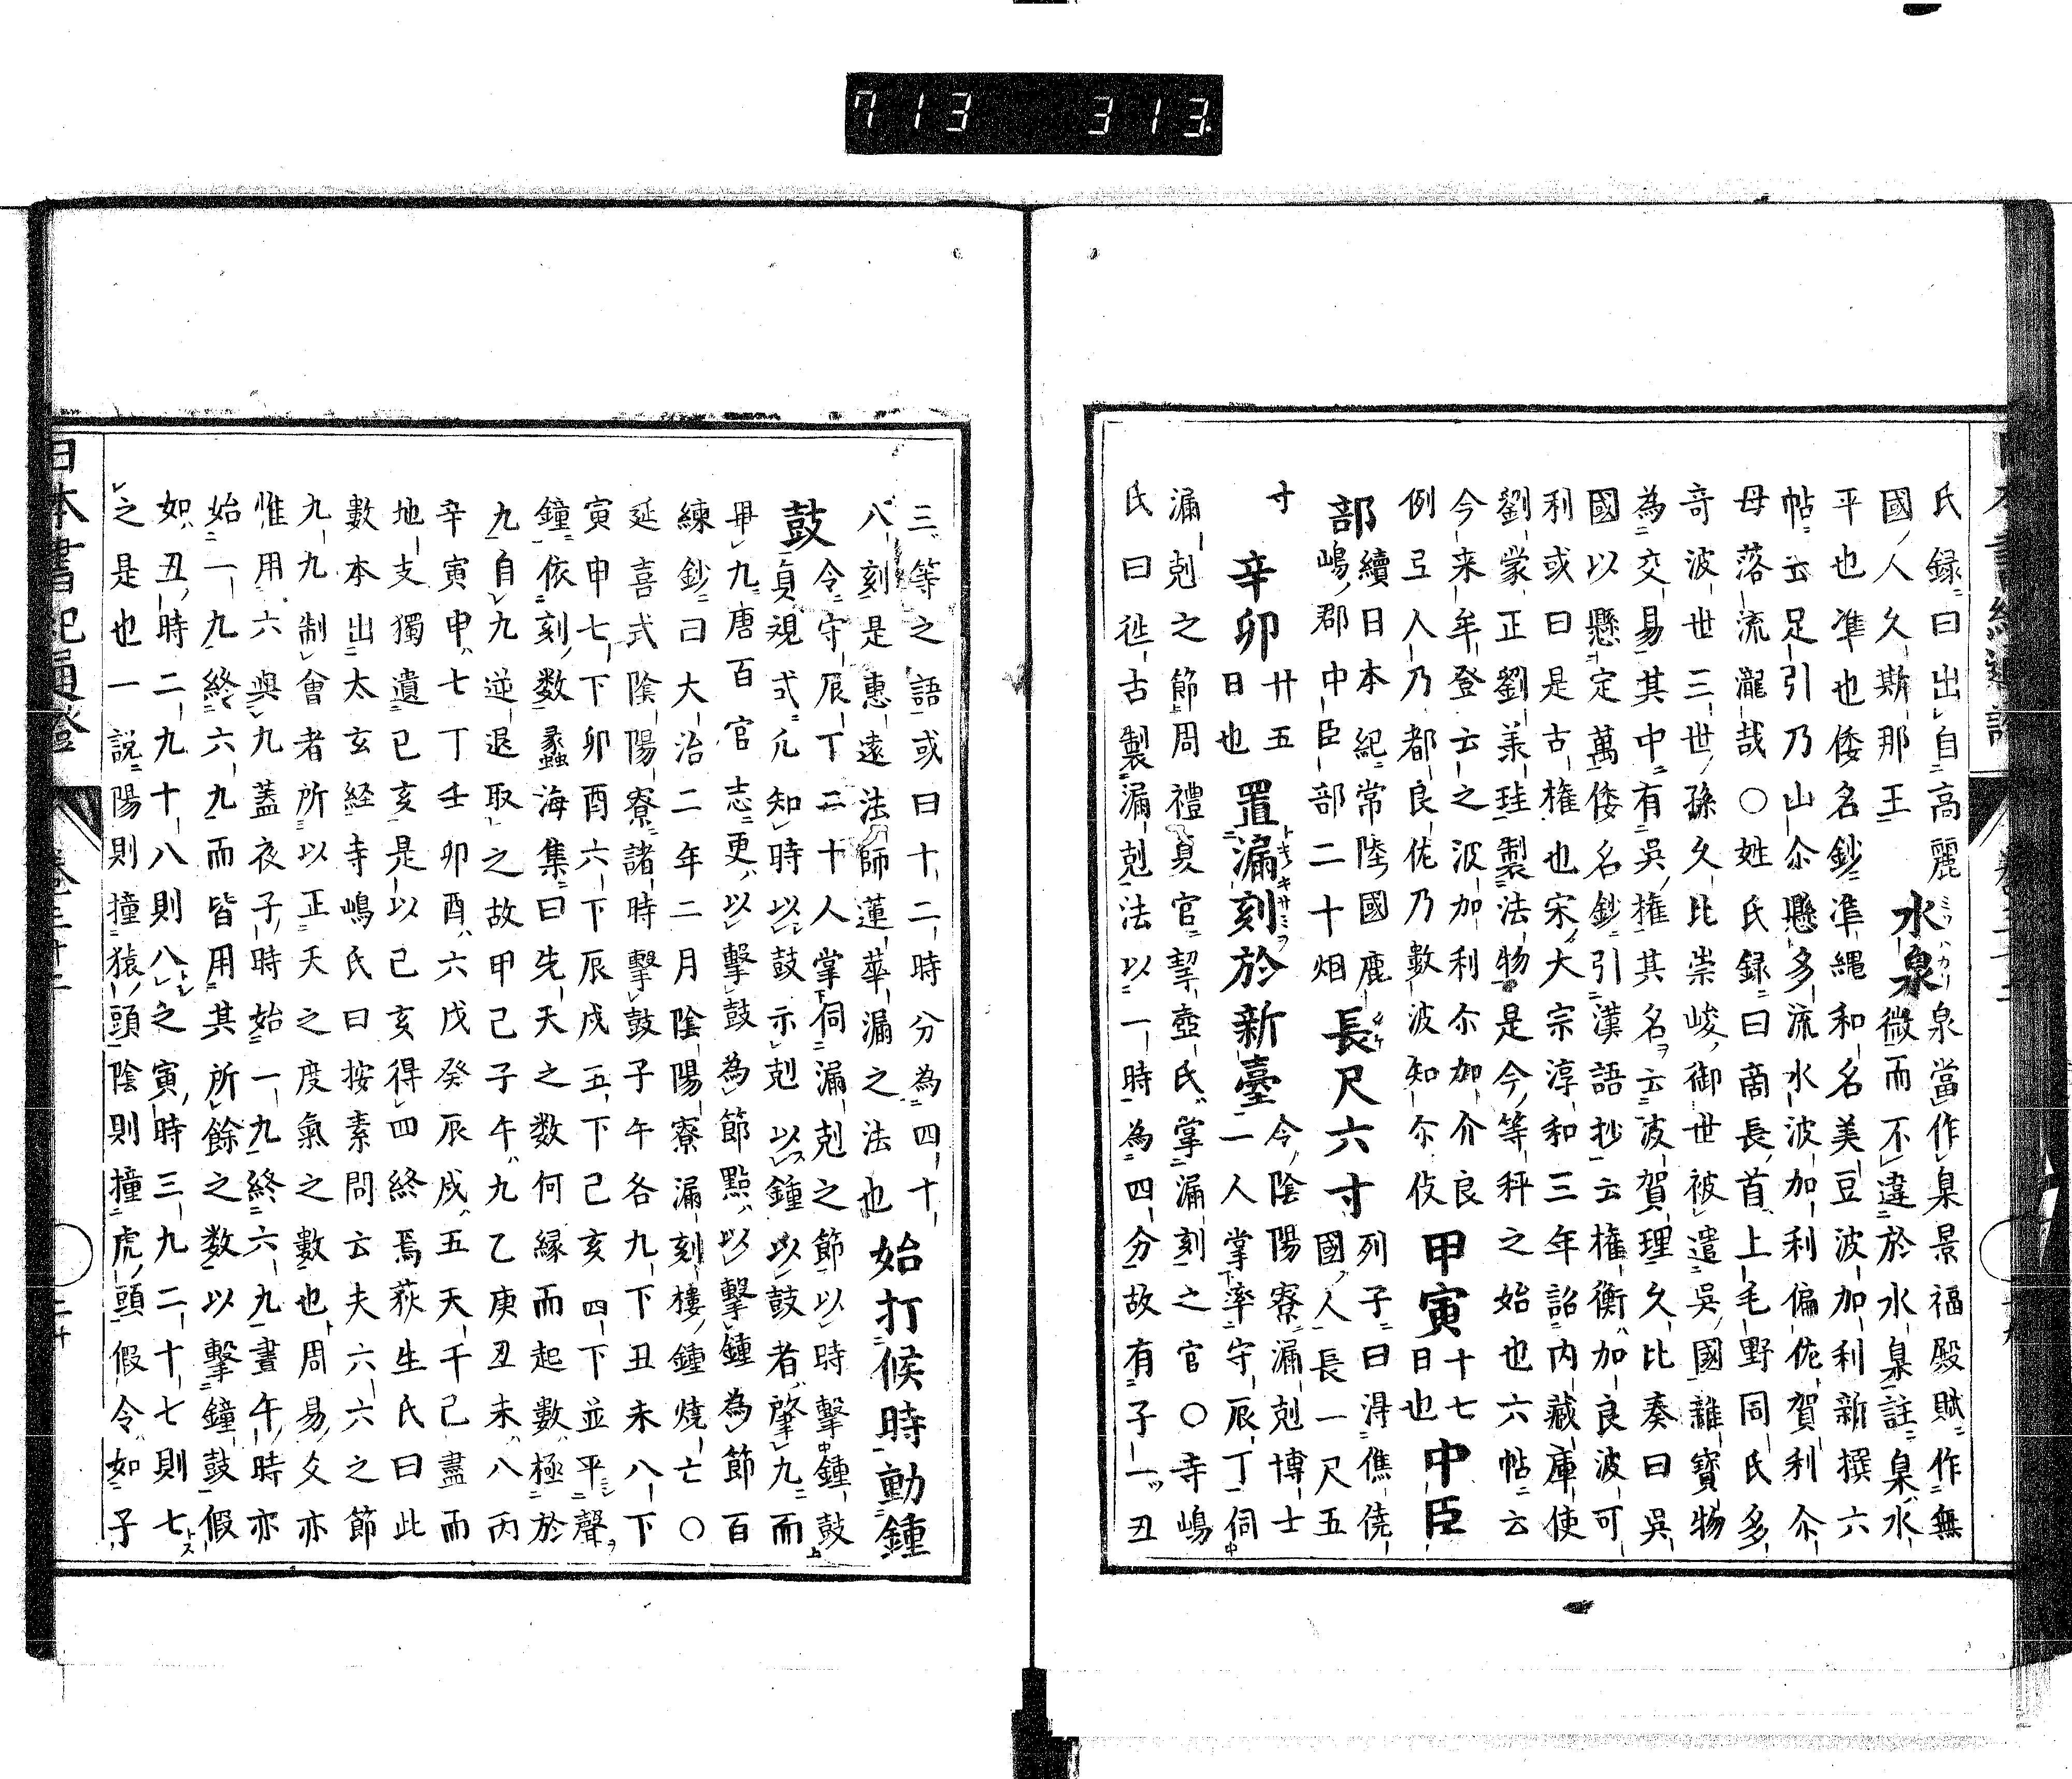 713 313
氏録曰出自高麗
國人久斯那王
水泉
泉當作臬景福殿賦作無
微而不違於水臬註臬水
平也準也倭名鈔準縄和名美豆波加利新撰六
帖云足引乃山尓懸多流水波加利偏佐賀利尓
母落流瀧哉〇姓氏録曰商長首上毛野同氏多
奇波世三世孫久比崇峻御世被遣呉國雜寶物
為交易其中有呉權其名云波賀理久比奏曰呉
國以懸定萬倭名鈔引漢語抄云權衡加良波可
利或曰是古權也宋大宗淳和三年詔内藏庫使
劉蒙正劉羕珪製法物是今等秤之始也六帖云
今来牟登云之波加利尓加介良
例弖人乃都良佐乃數波知尓伎
甲寅
十七
日也
中臣
部
續日本紀常陸國鹿
嶋郡中臣部二十烟
長尺六寸
列子曰得僬僥
國人長一尺五
寸
辛卯
廿五
日也
置漏刻於新臺
今陰陽寮漏剋博士
一人掌率守辰丁伺
漏剋之節周禮夏官挈壺氏掌漏刻之官〇寺嶋
氏曰徃古製漏剋法以一時為四分故有子一丑
三等之語或曰十二時分為四十
八刻是惠遠法師蓮華漏之法也
始打候時動鍾
鼓
令守辰丁二十人掌伺漏剋之節以時擊鍾鼓
貞観式凢知時以鼓示剋以鍾以鼓者肇九而
畢九唐百官志更以擊鼓為節點以擊鍾為節百
練鈔曰大治二年二月陰陽寮漏刻樓鍾燒亡〇
延喜式陰陽寮諸時擊鼓子午各九下丑未八下
寅申七下卯酉六下辰戌五下己亥四下並平聲
鐘依刻数蠡海集曰先天之数何縁而起數極於
九自九逆退取之故甲己子午九乙庚丑未八丙
辛寅申七丁壬卯酉六戊癸辰戌五天干已盡而
地支獨遺己亥是以己亥得四終焉荻生氏曰此
數本出太玄経寺嶋氏曰按素問云夫六六之節
九九制會者所以正天之度氣之數也周易爻亦
惟用六與九蓋夜子時始一九終六九晝午時亦
始一九終六九而皆用其所餘之数以擊鐘鼓假
如丑時二九十八則八之寅時三九二十七則七
之是也一説陽則撞猿頭陰則撞虎頭假令如子
日本書紀通證
卷三十二
二十